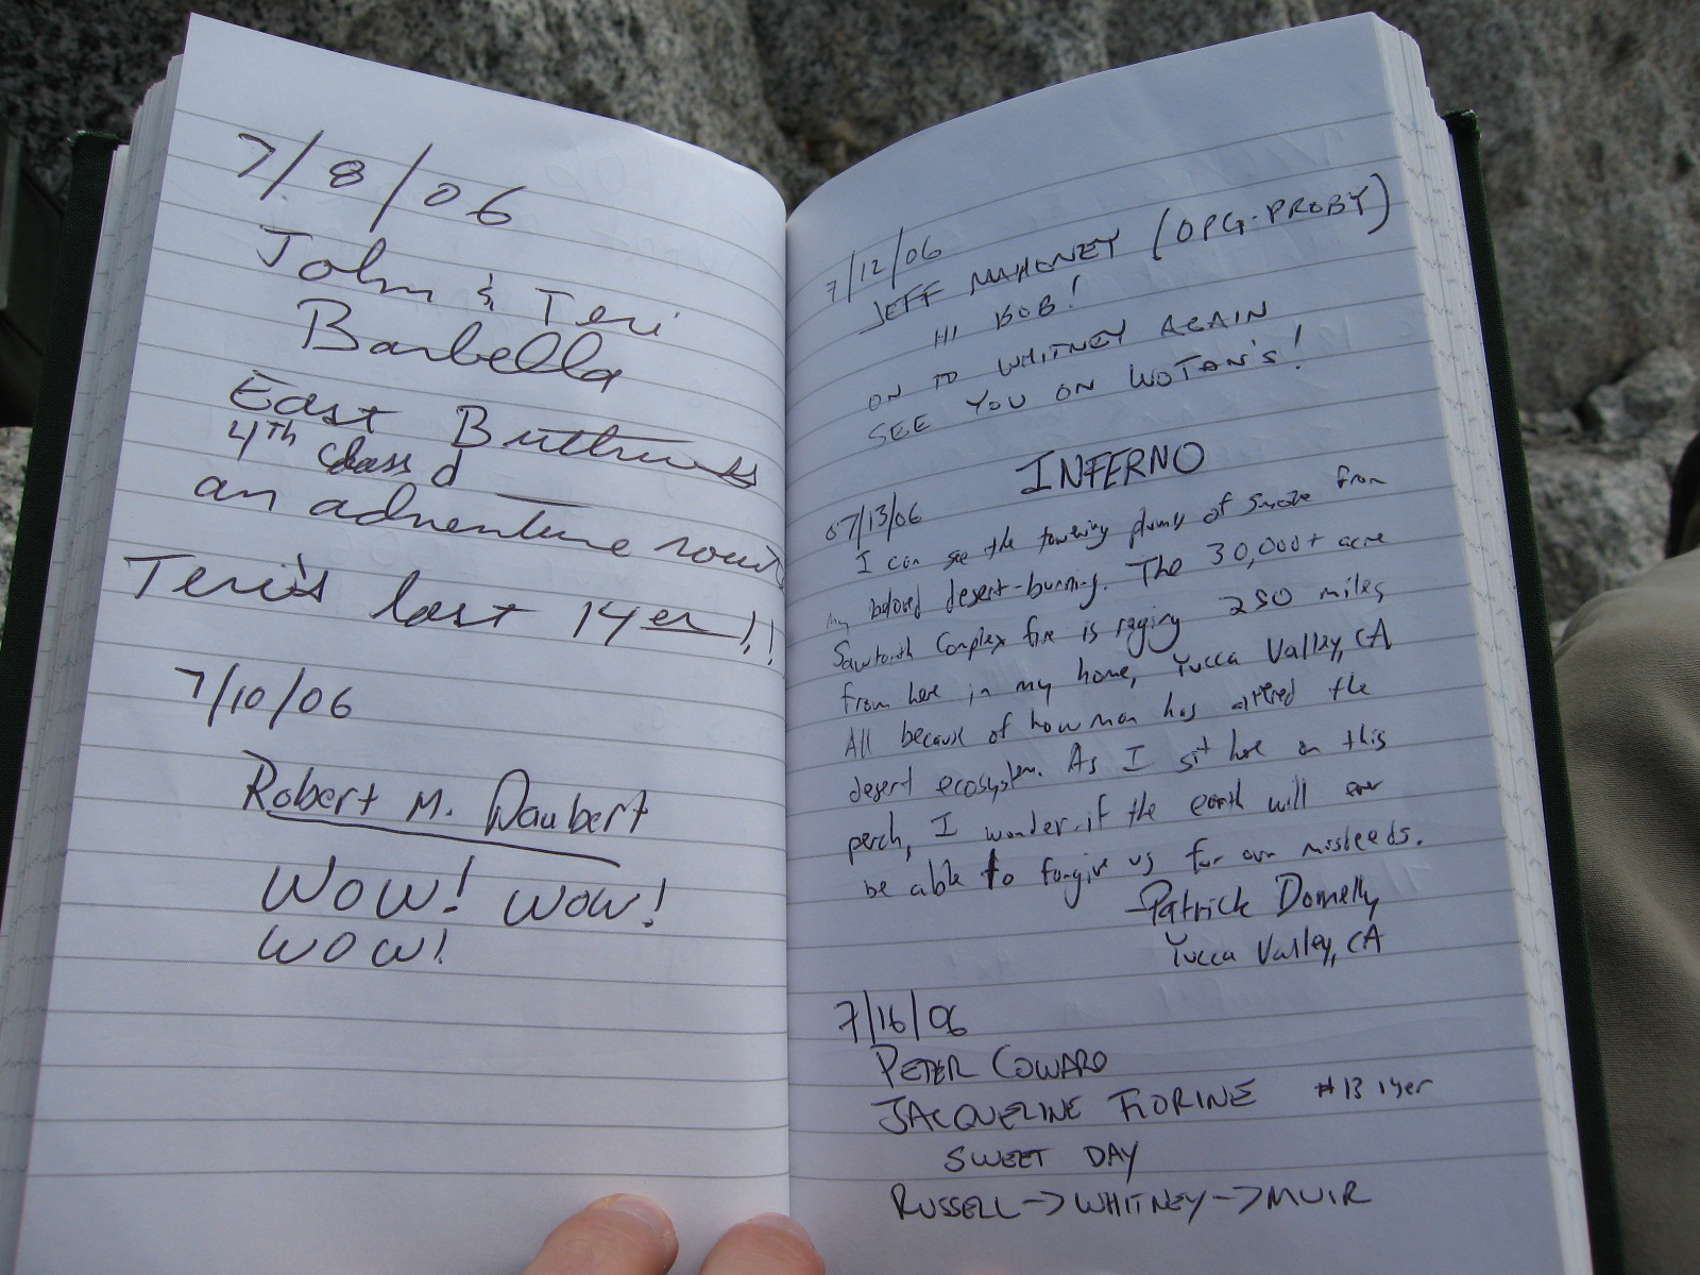 7/8/06
John & Teri
Barbella
East Buttress
4th class
an adventure route
Teri's last 14er!!
7/10/06
Robert M. Daubert
WOW! WOW!
WOW!
7/12/06
JEFF MAHONEY (OPG-PROBY)
HI BOB!
ON TO WHITNEY AGAIN
SEE YOU ON WOTAN'S!
INFERNO
07/13/06
I can see the towering plumes of smoke from
my beloved desert-burning. The 30,000+ acre
Sawtooth Complex fire is raging 250 miles
from here in my home, Yucca Valley, CA
All because of how man has altered the
desert ecosystem. As I sit here on this
perch, I wonder if the earth will ever
be able to forgive us for our misdeeds.
-Patrick Donnelly
Yucca Valley, CA
7/16/06
PETER COWARD
JACQUELINE FLORINE #13 14er
SWEET DAY
RUSSELL->WHITNEY->MUIR